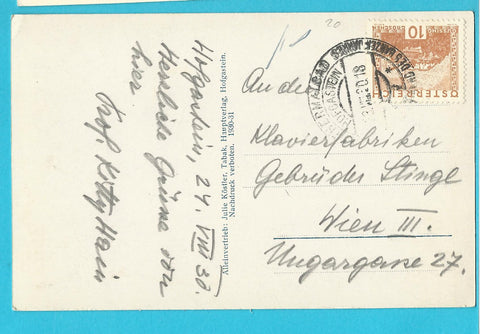 Hofgastein, 24. VIII 30.
Herzliche Grüsse von
hier
Prof. Kitty Hain
Alleinvertrieb: Julie Köstler, Tabak, Hauptverlag, Hofgastein.
Nachdruck verboten. 1930-31
20
ÖSTERREICH
10
HOFGASTEIN
An die
Klavierfabriken
Gebrüder Stingl
Wien III.
Ungargasse 27.